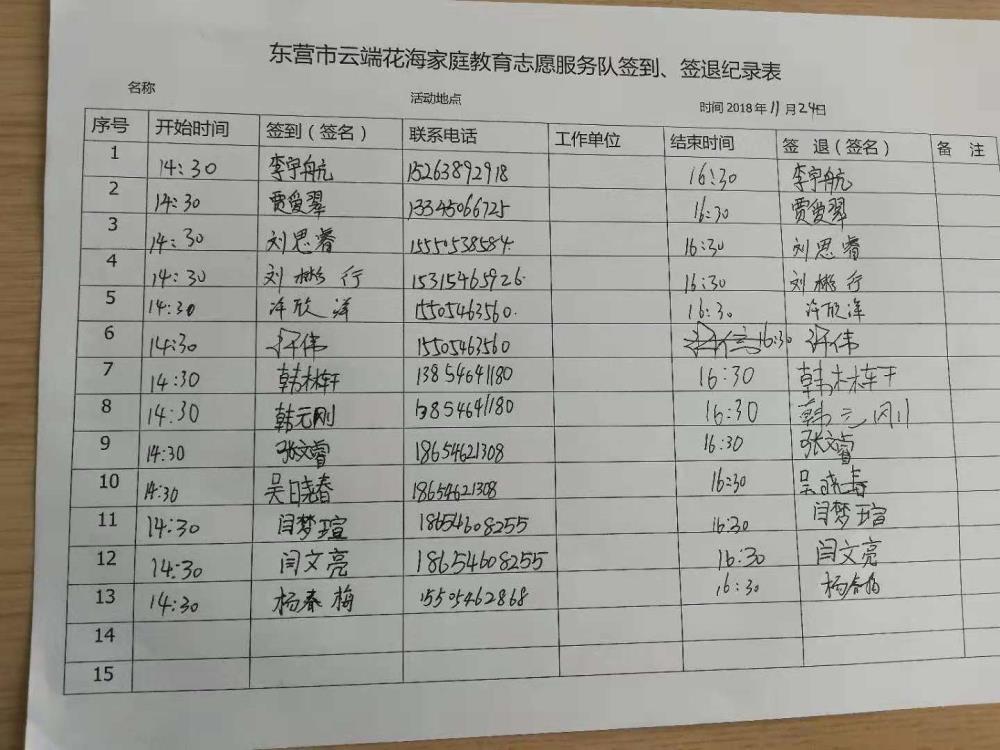 东营市云端花海家庭教育志愿服务队签到、签退纪录表
名称 活动地点 时间 2018 年 11 月 24日
序号 开始时间 签到（签名） 联系电话 工作单位 结束时间 签 退（签名） 备 注
1 14:30 李宇航 15263892918 16:30 李宇航
2 14:30 贾爱翠 13345066725 16:30 贾爱翠
3 14:30 刘思睿 15550538584 16:30 刘思睿
4 14:30 刘 行 15315465926 16:30 刘 行
5 14:30 许欣洋 15505463560 16:30 许欣洋
6 14:30 许伟 15505463560 16:30 许伟
7 14:30 韩林轩 13854641180 16:30 韩林轩
8 14:30 韩元刚 13854641180 16:30 韩元刚
9 14:30 张文睿 18654621308 16:30 张文睿
10 14:30 吴晓春 18654621308 16:30 吴晓春
11 14:30 闫梦瑄 18654608255 16:30 闫梦瑄
12 14:30 闫文亮 18654608255 16:30 闫文亮
13 14:30 杨春梅 15505462868 16:30 杨春梅
14
15